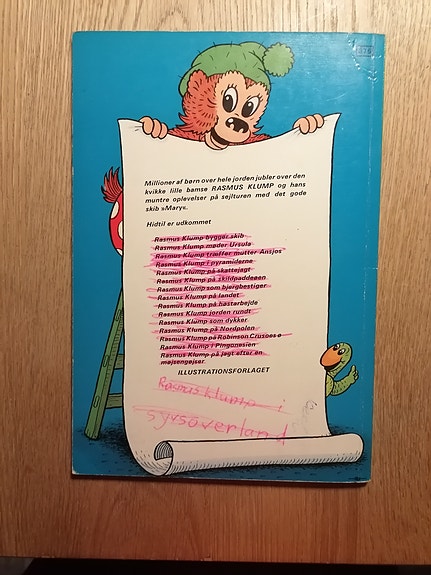 276
Millioner af børn over hele jorden jubler over den
kvikke lille bamse RASMUS KLUMP og hans
muntre oplevelser på sejlturen med det gode
skib »Mary«.
Hidtil er udkommet
Rasmus Klump bygger skib
Rasmus Klump møder Ursula
Rasmus Klump træffer mutter Ansjos
Rasmus Klump i pyramiderne
Rasmus Klump på skattejagt
Rasmus Klump på skildpaddeøen
Rasmus Klump som bjergbestiger
Rasmus Klump på landet
Rasmus Klump på hastarbejde
Rasmus Klump jorden rundt
Rasmus Klump som dykker
Rasmus Klump på Nordpolen
Rasmus Klump på Robinson Crusoes ø
Rasmus Klump i Pingonesien
Rasmus Klump på jagt efter en
mejsengejser
ILLUSTRATIONSFORLAGET
Rasmus Klump i
syvsoverland